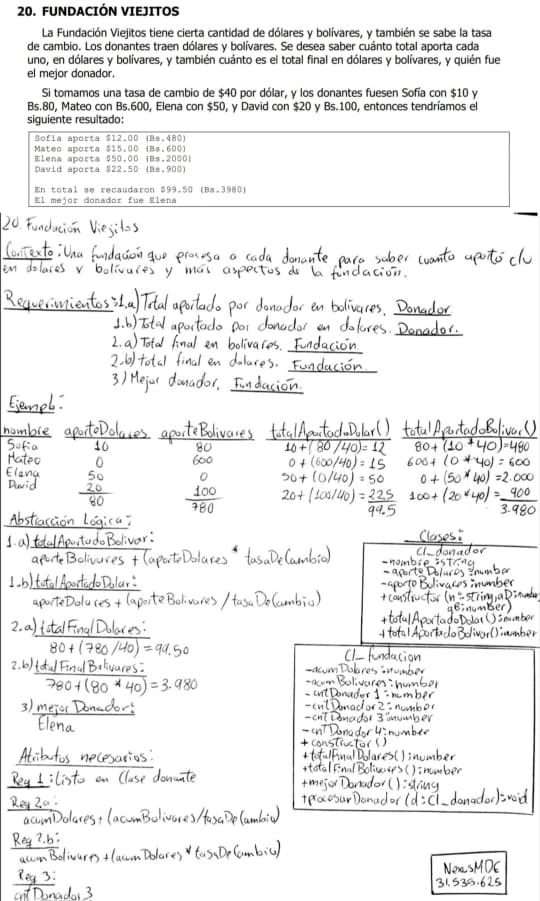 20. FUNDACIÓN VIEJITOS
La Fundación Viejitos tiene cierta cantidad de dólares y bolívares, y también se sabe la tasa
de cambio. Los donantes traen dólares y bolívares. Se desea saber cuánto total aporta cada
uno, en dólares y bolívares, y también cuánto es el total final en dólares y bolívares, y quién fue
el mejor donador.
Si tomamos una tasa de cambio de $40 por dólar, y los donantes fuesen Sofía con $10 y
Bs.80, Mateo con Bs.600, Elena con $50, y David con $20 y Bs.100, entonces tendríamos el
siguiente resultado:
Sofía aporta $12.00 (Bs.480)
Mateo aporta $15.00 (Bs.600)
Elena aporta $50.00 (Bs.2000)
David aporta $22.50 (Bs.900)
En total se recaudaron $99.50 (Bs.3980)
El mejor donador fue Elena
20. Fundación Viejitos
Contexto: Una fundación que procesa a cada donante para saber cuanto aportó c/u
en dolares y bolívares y más aspectos de la fundación.
Requerimientos: 1.a) Total aportado por donador en bolívares. Donador
1.b) Total aportado por donador en dolares. Donador.
2.a) Total final en bolívares. Fundación
2.b) total final en dolares. Fundación
3) Mejor donador. Fundación.
Ejemplo:
nombre aporteDolares aporteBolivares totalAportadoDolar() totalAportadoBolivar()
Sofia 10 80 10+(80/40)=12 80+(10*40)=480
Mateo 0 600 0+(600/40)=15 600+(0*40)=600
Elena 50 0 50+(0/40)=50 0+(50*40)=2.000
David 20 100 20+(100/40)=22.5 100+(20*40)=900
80 780 99.5 3.980
Abstracción Lógica:
1.a) totalAportadoBolivar:
aporteBolivares + (aporteDolares * tasaDeCambio)
1.b) totalAportadoDolar:
aporteDolares + (aporteBolivares / tasaDeCambio)
2.a) totalFinalDolares:
80+(780/40)=99.50
2.b) totalFinalBolivares:
780+(80*40)=3.980
3) mejorDonador:
Elena
Atributos necesarios:
Req 1: Listo en Clase donante
Req 2a:
acumDolares+(acumBolivares/tasaDeCambio)
Req 2.b:
acumBolivares+(acumDolares*tasaDeCambio)
Req 3:
cntDonador3
Clases:
Cl_donador
-nombre:string
-aporteDolares:number
-aporteBolivares:number
+totalAportadoDolar():number
+totalAportadoBolivar():number
Cl_fundacion
-acumDolares:number
-acumBolivares:number
-cntDonador1:number
-cntDonador2:number
-cntDonador3:number
-cntDonador4:number
+constructor()
+totalFinalDolares():number
+totalFinalBolivares():number
+mejorDonador():string
+procesarDonador(d:Cl_donador):void
NexusMDE
31.535.625